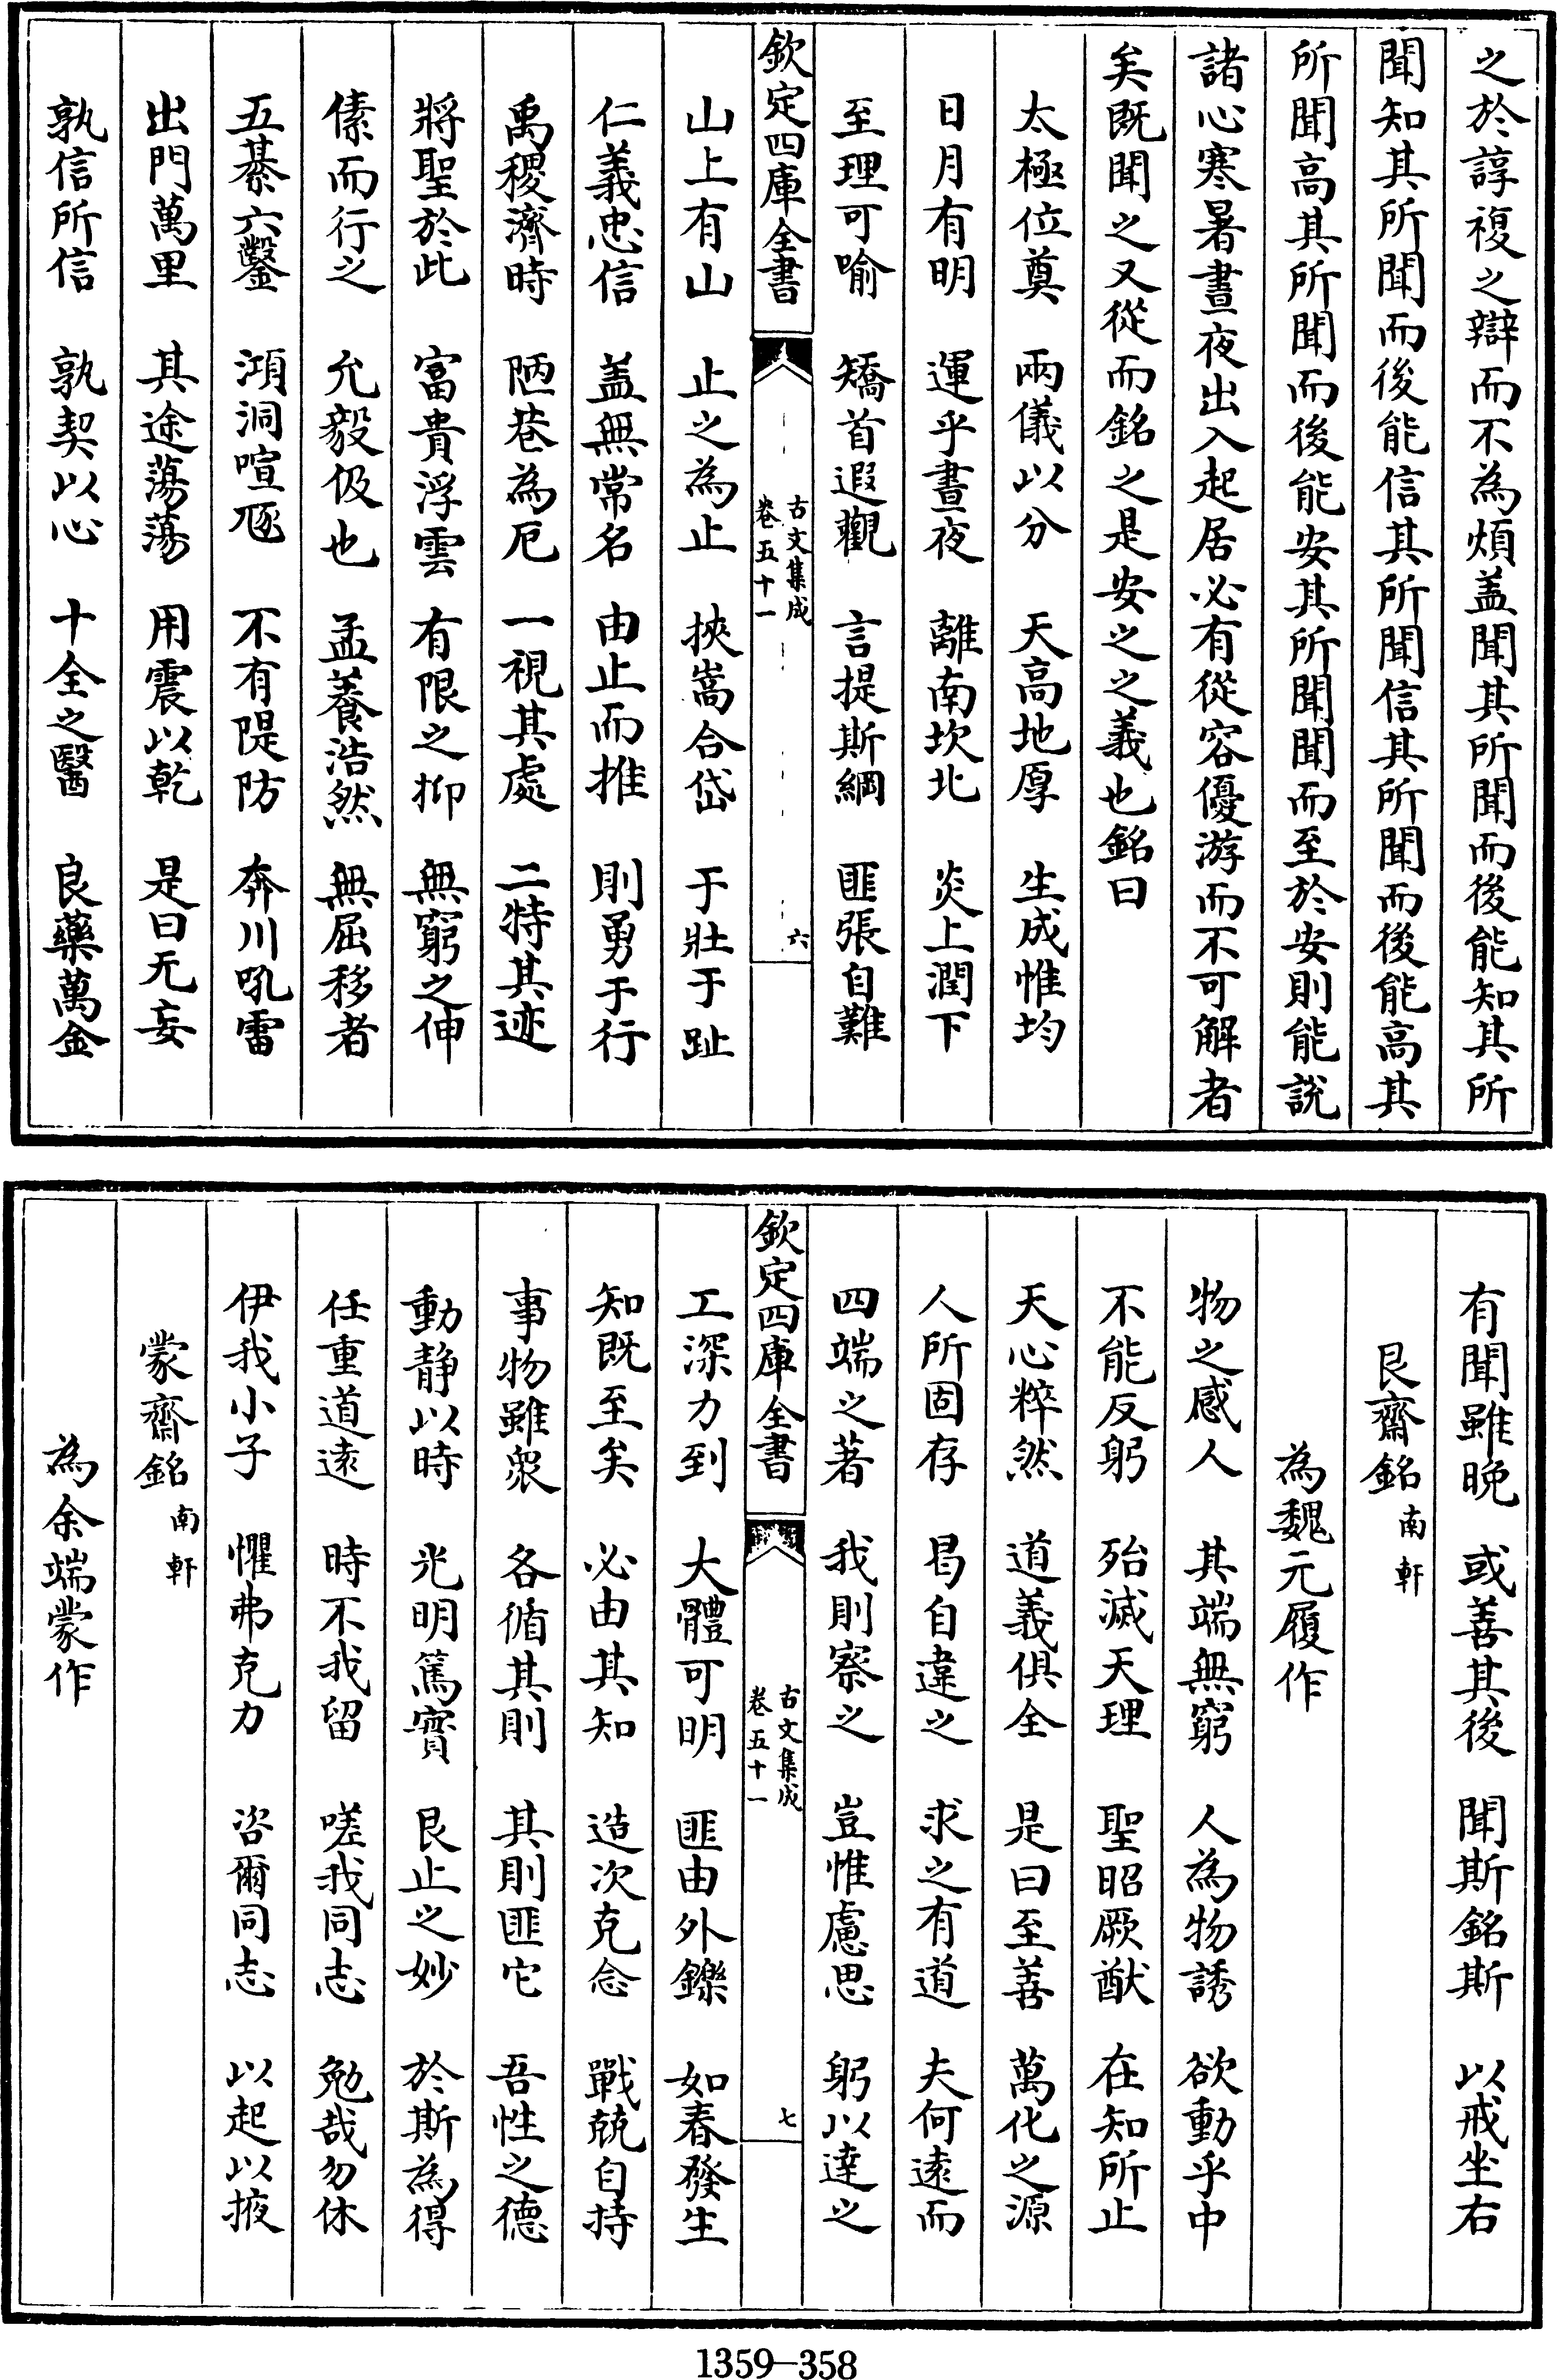 之於諄複之辯而不為煩盖聞其所聞而後能知其所
聞知其所聞而後能信其所聞信其所聞而後能高其
所聞高其所聞而後能安其所聞聞而至於安則能說
諸心寒暑晝夜出入起居必有從容優游而不可解者
矣既聞之又從而銘之是安之之義也銘曰
太極位奠　兩儀以分　天高地厚　生成惟均
日月有明　運乎晝夜　離南坎北　炎上潤下
至理可喻　矯首遐觀　言提斯綱　匪張自難
欽定四庫全書
古文集成
卷五十一
六
山上有山　止之為止　挾嵩合岱　于壯于趾
仁義忠信　盖無常名　由止而推　則勇于行
禹稷濟時　陋巷為厄　一視其處　二特其迹
將聖於此　富貴浮雲　有限之抑　無窮之伸
傃而行之　允毅伋也　孟養浩然　無屈移者
五綦六鑿　澒洞喧豗　不有隄防　奔川吼雷
出門萬里　其途蕩蕩　用震以乾　是曰无妄
孰信所信　孰契以心　十全之醫　良藥萬金
有聞雖晚　或善其後　聞斯銘斯　以戒坐右
艮齋銘 南軒
為魏元履作
物之感人　其端無窮　人為物誘　欲動乎中
不能反躬　殆滅天理　聖昭厥猷　在知所止
天心粹然　道義俱全　是曰至善　萬化之源
人所固存　曷自違之　求之有道　夫何遠而
四端之著　我則察之　豈惟慮思　躬以達之
欽定四庫全書
古文集成
卷五十一
七
工深力到　大體可明　匪由外鑠　如春發生
知既至矣　必由其知　造次克念　戰兢自持
事物雖衆　各循其則　其則匪它　吾性之德
動静以時　光明篤實　艮止之妙　於斯為得
任重道遠　時不我留　嗟我同志　勉哉勿休
伊我小子　懼弗克力　咨爾同志　以起以掖
蒙齋銘 南軒
為余端蒙作
1359—358